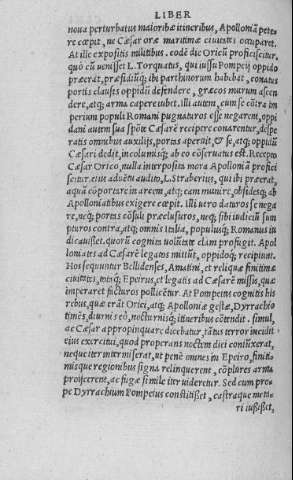 LIBER
noua perturbatus maioribꝰ itineribus, Apolloniã pete
re cœpit, ne Cæsar oræ maritimæ ciuitates occuparet.
At ille expositis militibus, eodẽ die Oricũ proficiscitur,
quò cũ uenisset L. Torquatus, qui iussu Pompeij oppido
præerat, præsidiũq; ibi parthinorum habebat, conatus
portis clausis oppidũ defendere, græcos murum ascen
dere, atq; arma capere iubet. illi autem, cum se cõtra im
perium populi Romani pugnaturos esse negarent, oppi
dani autem sua spõte Cæsarẽ recipere conarentur, despe
ratis omnibus auxilijs, portas aperuit, & se, atq; oppidũ
Cæsari dedit, incolumisq; ab eo cõseruatus est. Recepto
Cæsar Orico, nulla interposita mora Apolloniã profici
scitur. eius aduẽtu audito, L. Straberius, qui ibi præerat,
aquã cõportare in arcem, atq; eam munire, obsidesq; ab
Apolloniatibus exigere cœpit. illi uero daturos se nega
re, neq; portas cõsuli præclusuros, neq; sibi iudiciũ sum
pturos contra, atq; omnis italia, populusq; Romanus iu
dicauisset. quorũ cognita uolũtate clam profugit. Apol
loniates ad Cæsarẽ legatos mittũt, oppidoq; recipiunt.
Hos sequuntur Bellidenses, Amatini, et reliquæ finitimæ
ciuitates, totaq; Epeirus, et legatis ad Cæsarẽ missis, quæ
imperaret facturos pollicẽtur. At Pompeius cognitis his
rebus, quæ erãt Orici, atq; Apolloniæ gestæ, Dyrrachio
timẽs, diurnis eò, nocturnisq; itineribus cõtendit. simul,
ac Cæsar appropinquare dicebatur, tãtus terror incidit
eius exercitui, quod properans noctem diei coniũxerat,
neque iter intermiserat, ut penè omnes in Epeiro, finiti-
misque regionibus signa relinquerent, cõplures arma
proijcerent, ac fugæ simile iter uideretur. Sed cum pro-
pe Dyrrachium Pompeius constitisset, castraque meta-
ri iussisset,